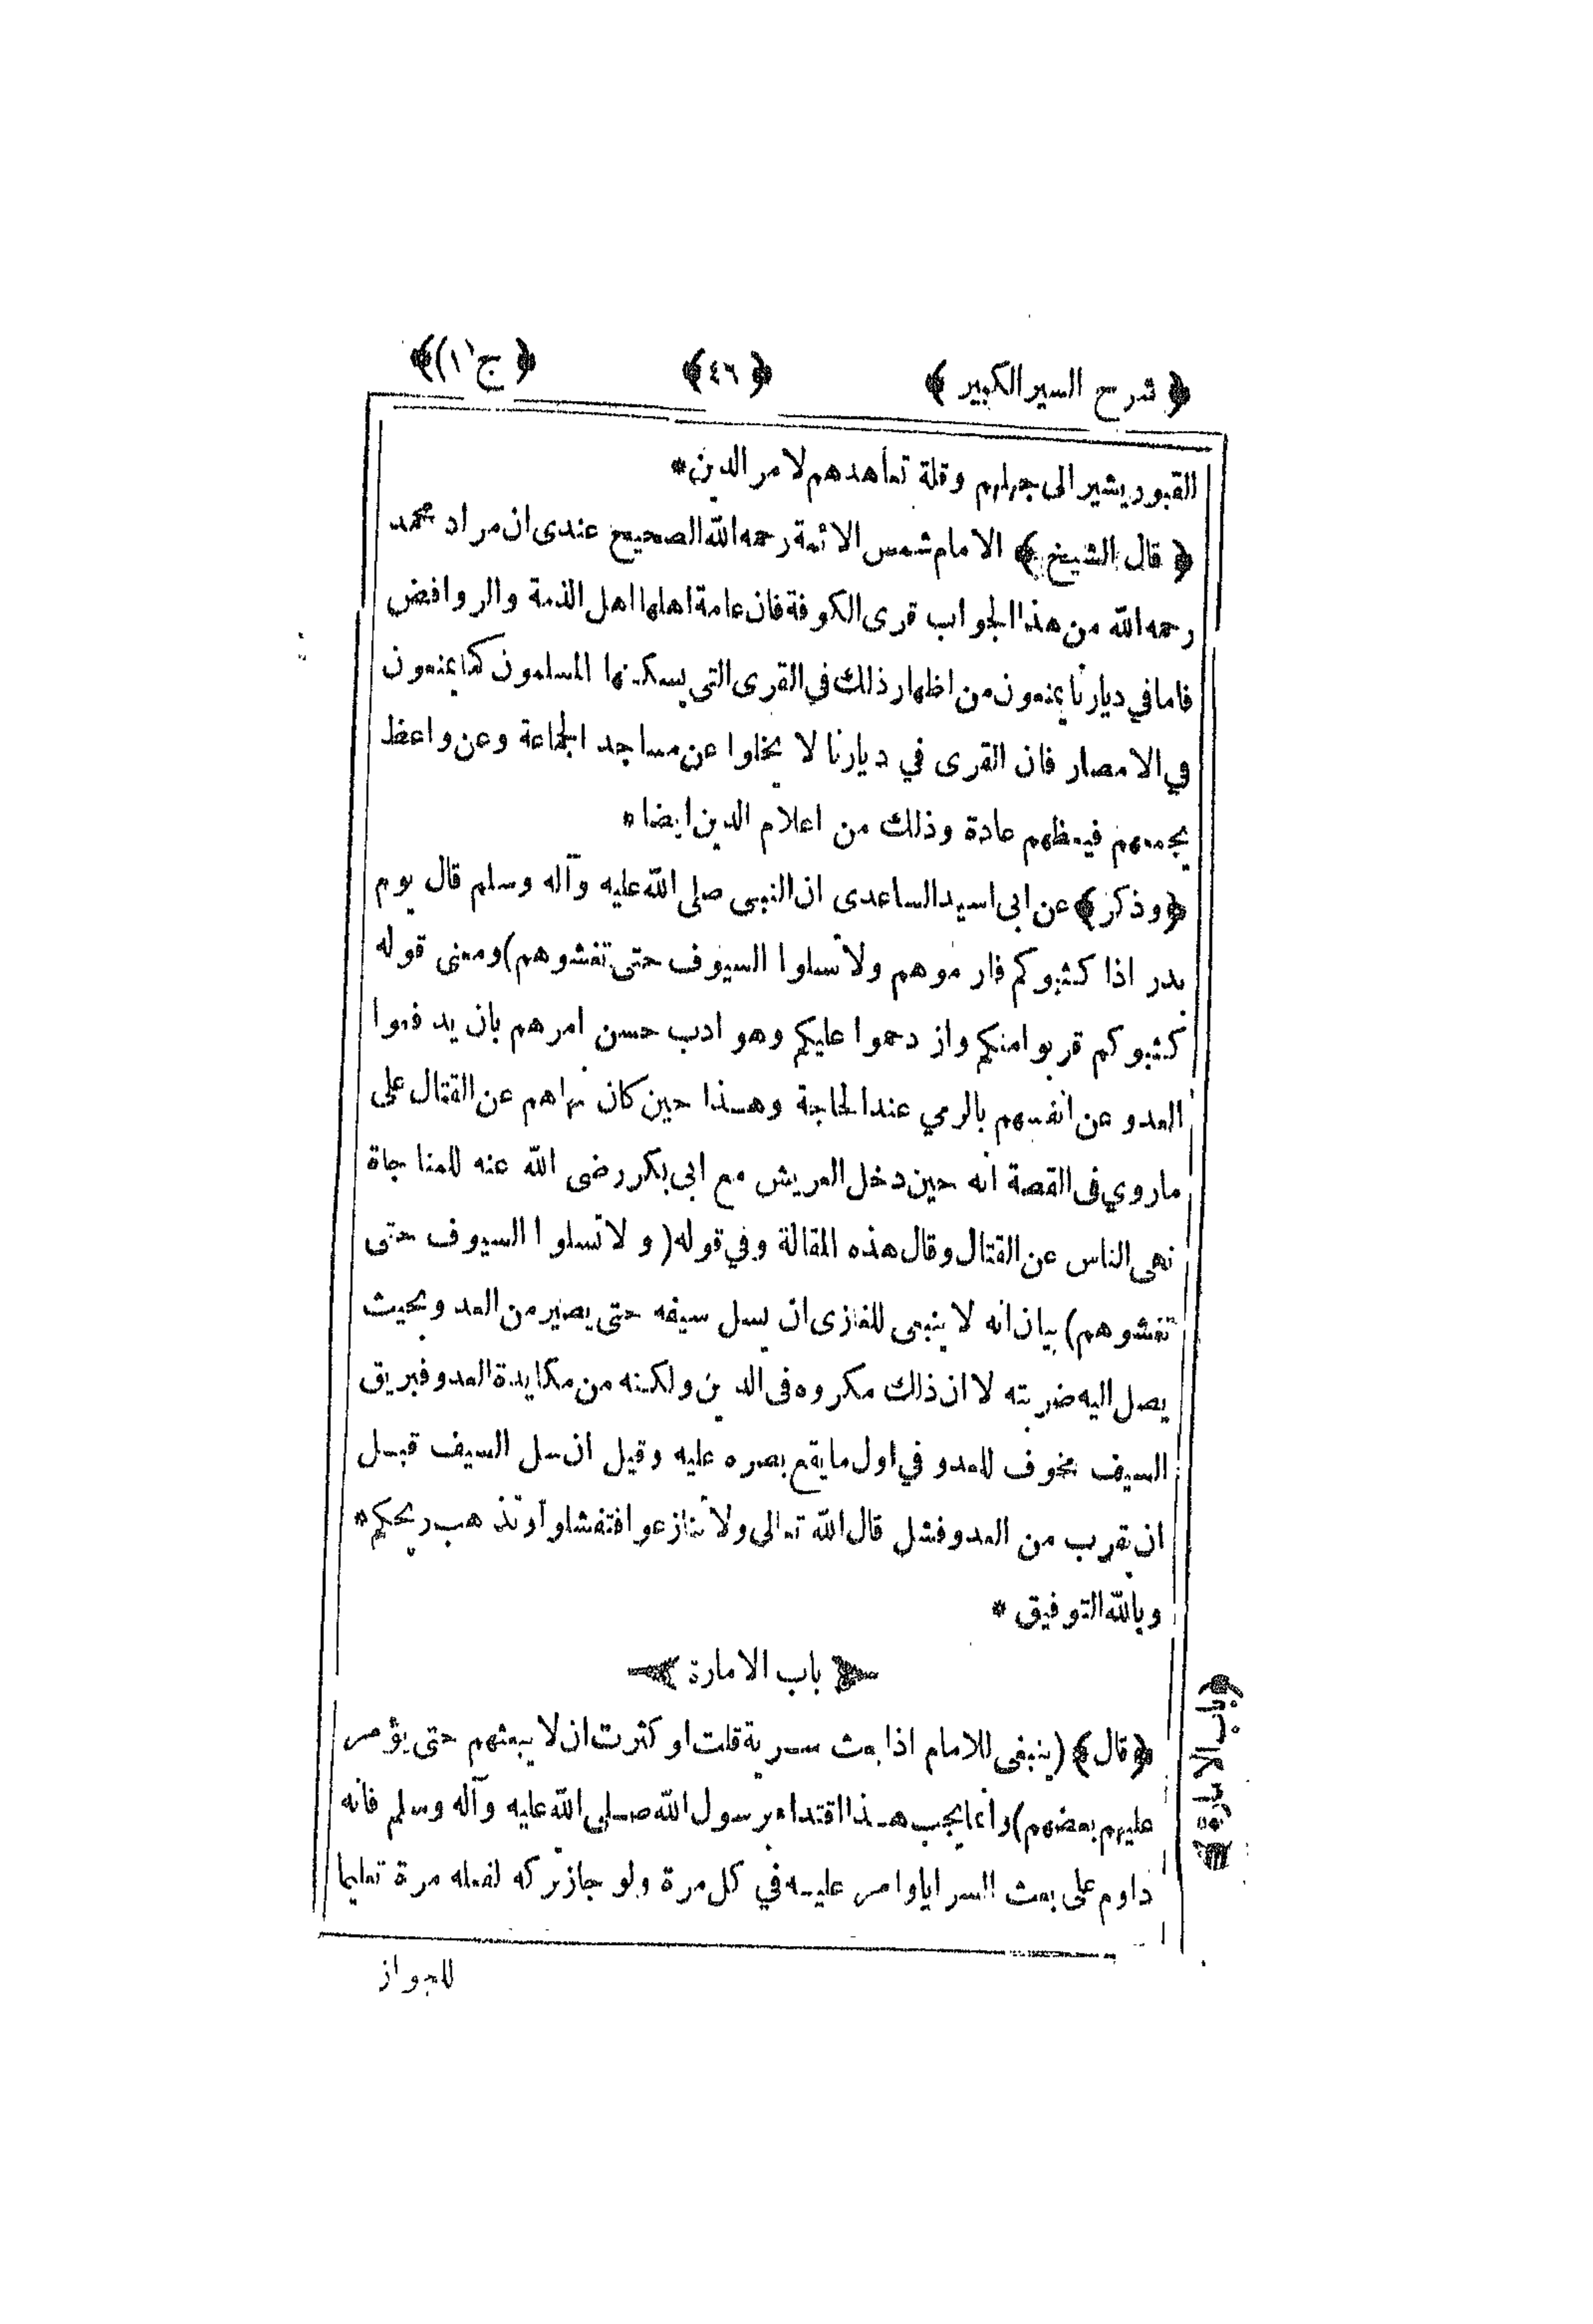 ﴿ شرح السير الكبير ﴾ ﴿٤٦﴾ ﴿ ج (١)﴾
القبور يشير الى جهلهم وقلة تعاهدهم لامر الدين*
﴿ قال الشيخ ﴾ الامام شمس الائمة رحمه الله الصحيح عندى ان مراد محمد
رحمه الله من هذا الجواب قرى الكوفة فان عامة اهلها اهل الذمة والروافض
فاما في ديارنا يمنعون من اظهار ذلك في القرى التى يسكنها المسلمون كما يمنعون
في الامصار فان القرى في ديارنا لا يخلوا عن مساجد الجماعة وعن واعظ
يجمعهم فيعظهم عادة وذلك من اعلام الدين ايضا*
﴿وذكر﴾ عن ابى اسيد الساعدى ان النبى صلى الله عليه وآله وسلم قال يوم
بدر اذا كثبوكم فارموهم ولا تسلوا السيوف حتى تغشوهم) ومعنى قوله
كثبوكم قربوا منكم وازدحموا عليكم وهو ادب حسن امرهم بان يدفعوا
العدو عن انفسهم بالرمي عند الحاجة وهذا حين كان نهاهم عن القتال على
ماروي فى القصة انه حين دخل العريش مع ابى بكر رضى الله عنه للمناجاة
نهى الناس عن القتال وقال هذه المقالة وفي قوله (ولا تسلوا السيوف حتى
تغشوهم) بيان انه لا ينبغى للغازى ان يسل سيفه حتى يصير من العدو بحيث
يصل اليه ضربته لا ان ذلك مكروه فى الدين ولكنه من مكايدة العدو فبريق
السيف مخوف للعدو في اول ما يقع بصره عليه وقيل ان سل السيف قبل
ان يقرب من العدو فشل قال الله تعالى ولا تنازعوا فتفشلوا وتذهب ريحكم*
وبالله التوفيق *
﴿ باب الامارة ﴾
﴿قال﴾ (ينبغى للامام اذا بعث سرية قلت او كثرت ان لا يبعثهم حتى يؤمر
عليهم بعضهم) وانما يجب هذا اقتداء برسول الله صلى الله عليه وآله وسلم فانه
داوم على بعث السرايا وامر عليه في كل مرة ولو جاز تركه لفعله مرة تعليما
للجواز
﴿باب الامارة﴾